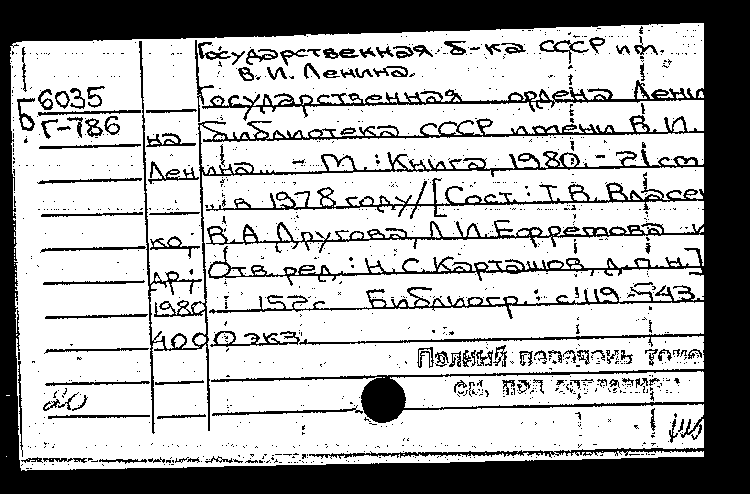 Государственная б-ка СССР им.
В. И. Ленина.
Б 6035
Г-786
Государственная ордена Лени
на Библиотека СССР имени В. И.
Ленина... - М.: Книга, 1980. - 21 см
... в 1978 году/[Сост.: Т. В. Власен
ко, В. А. Другова, Л. И. Ефремова и
др.; Отв. ред.: Н. С. Карташов, д. п. н.]
1980. 152 с Библиогр.: с. 119-143.
4000 экз.
Полный перечень томо
см. под заглавием
20